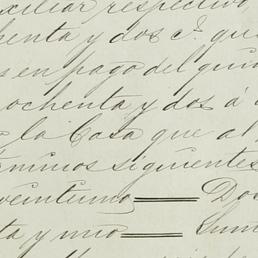 xiliar respectivo
henta y dos
s en pago del qui
ochenta y dos á
la Casa que al
érminos siguientes
veintiuno Dos
ta y uno Sum